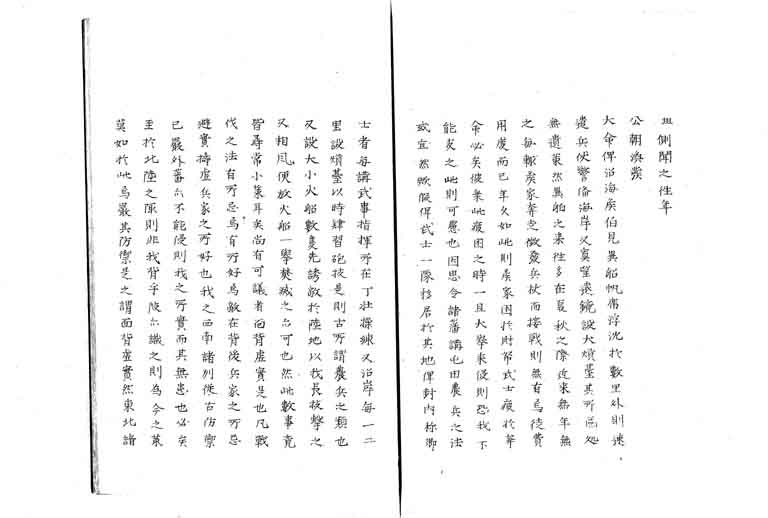 側聞之往年
公朝渙發
大命俾沿海矦伯見異船帆楫浮沈於數里外則速
遣兵使警備海岸又寘望遠鏡設大煩臺其所區処
無遺策然異舶之来徃多在夏秋之際近來無年無
之每報矦家奔走徴發兵仗而接戰則無有焉徒費
用度而已年久如此則矦家困於財帑武士疲於奔
命必矣彼乗此疲困之時一旦大擧来侵則恐我不
能支之此則可患也因思令諸藩講屯田農兵之法
或宜然歟俾武士一隊移居於其地俾封内称郷
士者每講武事指揮所在丁壮操練又沿岸每一二
里設煩臺以時肄習砲技是則古所謂農兵之類也
又設大小火船數隻先誘敵於陸地以我長技擊之
又相風便放火船一擧焚滅之亦可也然此數事竟
皆尋常小策耳矣尚有可議者面背虚實是也凡戰
伐之法有所忌焉有所好焉敵在背後兵家之所忌
避實擣虚兵家之所好也我之西南諸列従古防禦
已嚴外蕃亦不能侵則我之所實而其無患也必矣
至於北陸之陬則非我背乎陝亦議之則為今之策
莫如於此焉嚴其防禦是之謂面背虚實然東北諸